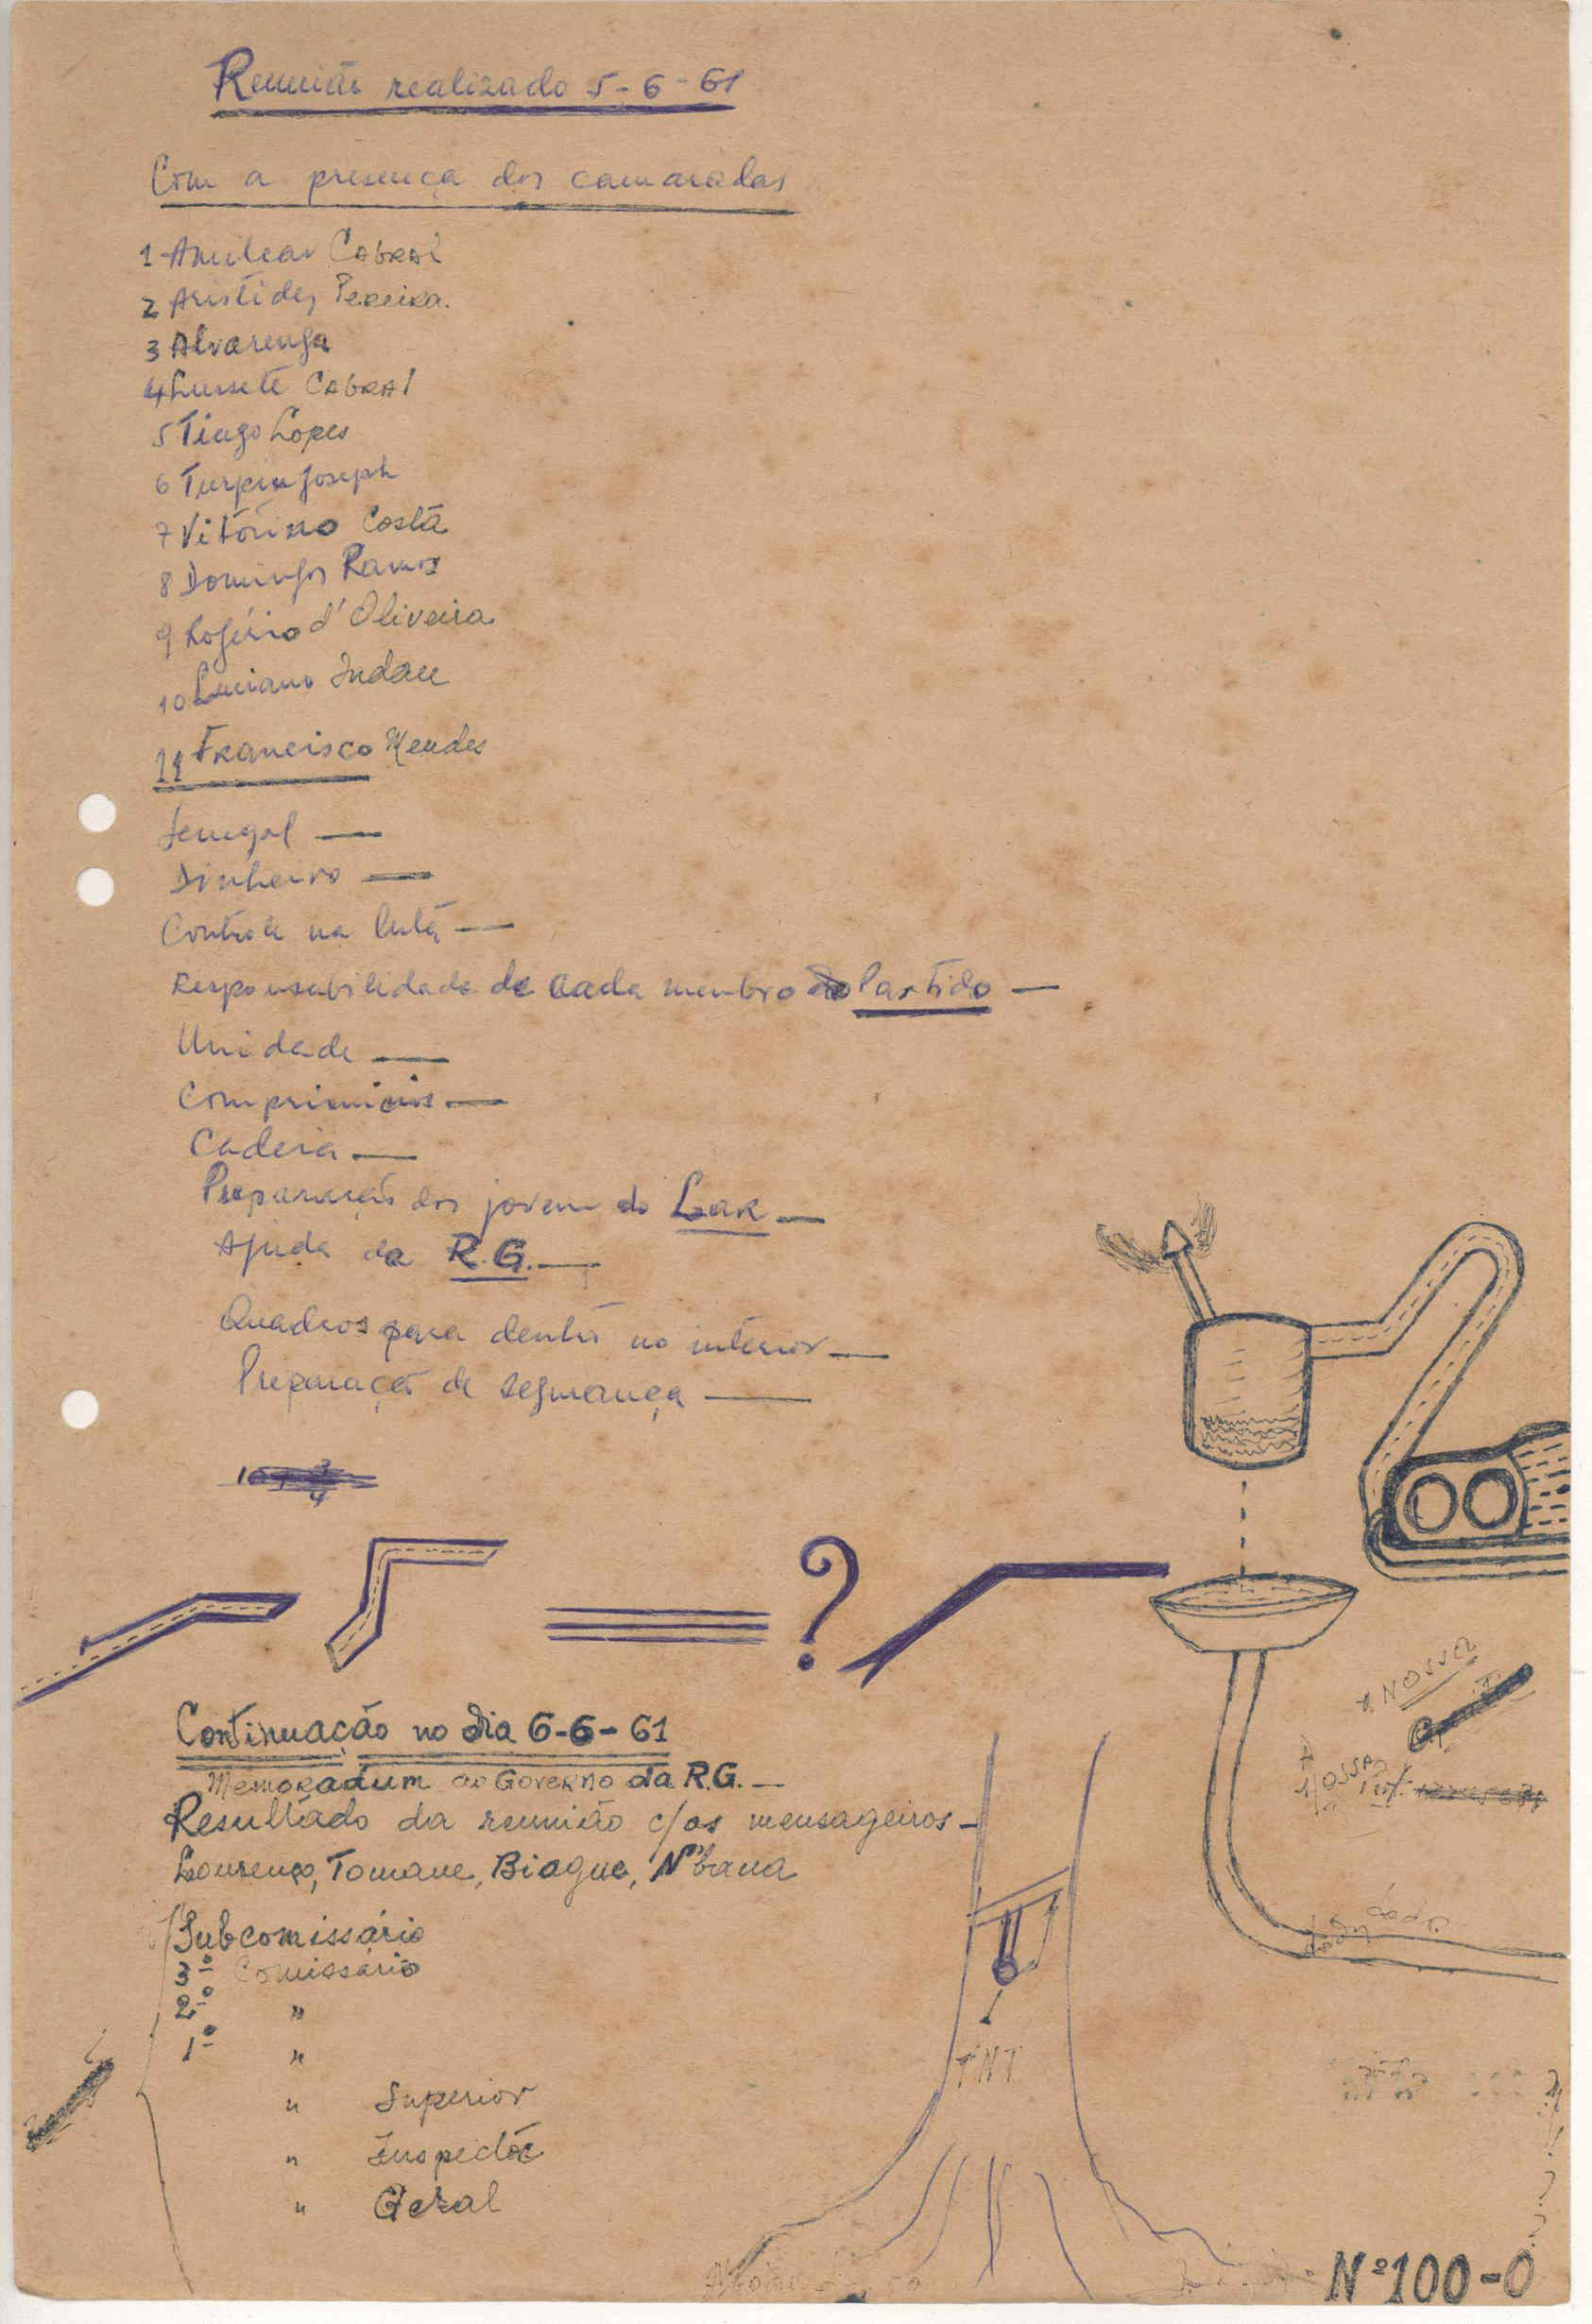 Reunião realizado 5-6-61
Com a presença dos camaradas
1 Amilcar Cabral
2 Aristides Pereira.
3 Alvarenga
4 Lussete Cabral
5 Tiago Lopes
6 Turpin Joseph
7 Vitórino Costa
8 Domingos Ramos
9 Rogério d'Oliveira
10 Luciano Indau
11 Francisco Mendes
Senegal —
Dinheiro —
Controle na luta —
Responsabilidade de cada membro do Partido —
Unidade —
Cadeia —
Preparação dos jovem do Lar —
Ajuda da R.G. —
Quadros para dentro no interior —
Preparação de segurança —
?
Continuação no dia 6-6-61
Memoradum ao Governo da R.G. —
Resultado da reunião c/os mensageiros —
Lourenço, Tomane, Biague, N'bana
Subcomissário
3º Comissário
2º "
1º "
" Superior
" Inspectôr
" Geral
NOSSA
TNT
Nº100-O